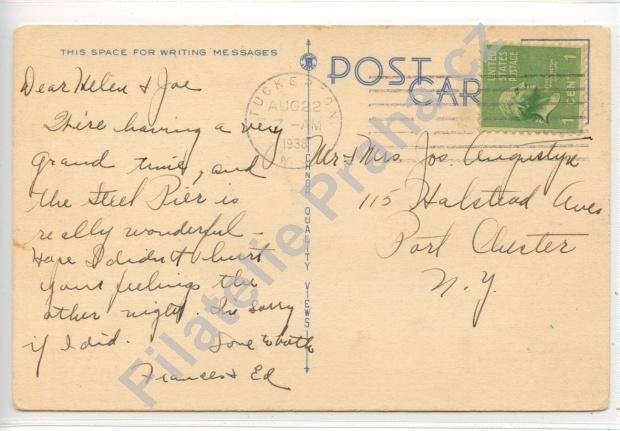 THIS SPACE FOR WRITING MESSAGES
POST
CARD
UNITED
STATES
POSTAGE
1 CENT 1
TUCKERTON
AUG 22
7-AM
1938
N.J.
TICHNOR QUALITY VIEWS
Dear Helen & Joe
We're having a very
grand time, and
the Steel Pier is
really wonderful -
Hope I didn't hurt
your feelings the
other night. I'm sorry
if I did. Love to both
Frances & Ed
Mr & Mrs. Jos. Augustyn
115 Halstead Ave
Port Chester
N.Y.
Filatelie Praha.cz